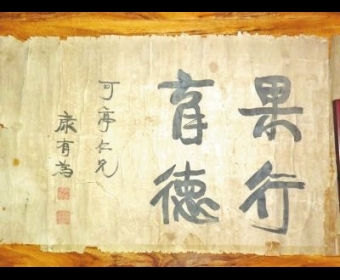 果行
育德
可亭仁兄
康有為